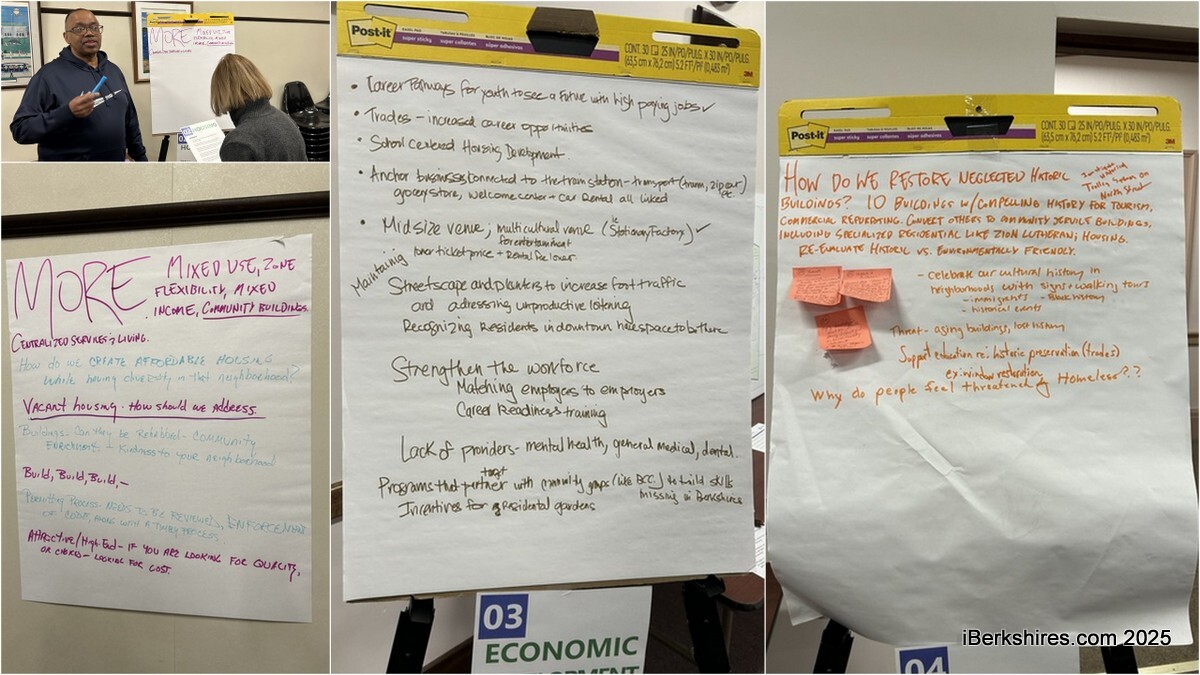 MORE MIXED USE, ZONE
FLEXIBILITY, MIXED
INCOME, COMMUNITY BUILDINGS
MORE MIXED USE, ZONE
FLEXIBILITY, MIXED
INCOME, COMMUNITY BUILDINGS.
CENTRALIZED SERVICES & LIVING.
HOW DO WE CREATE AFFORDABLE HOUSING
While having diversity in that neighborhood?
VACANT HOUSING. HOW SHOULD WE ADDRESS.
Buildings - Can they be Rehabbed - COMMUNITY
ENRICHMENT + Kindness to your neighborhood
Build, Build, Build,-
Permitting Process - NEEDS TO BE REVIEWED, ENFORCEMENT
OF CODE, ALONG WITH A TIMELY PROCESS.
Attractive/High End - IF YOU ARE LOOKING FOR QUALITY,
OR - LOOKING FOR COST.
Post-it
super sticky super collantes super adhesivas
CONT. 30 25 IN/PO/PULG. X 30 IN/PO/PULG.
(63,5 cm x 76,2 cm) 5.2 FT²/PI² (0,483 m²)
3M
• Career Pathways for youth to see a future with high paying jobs ✓
• Trades - increased career opportunities
• School Centered Housing Development.
• Anchor businesses connected to the train station - transport (tramm, zip car) etc.
grocery store, welcome center + Car Rental all linked
• Midsize venue; multicultural venue (ie Stationary Factory) ✓
for entertainment
lower ticket price + Rental fee lower
Maintaining Streetscape and planters to increase foot traffic
and adressing unproductive loitering
Recognizing Residents in downtown need space to be there
Strengthen the workforce
Matching employees to employers
Career Readiness training
Lack of providers - mental health, general medical, dental.
Programs that partner with community groups (like BCC) to build skills
missing in Berkshires
Incentives for Residental gardens
03
ECONOMIC
DEVELOPMENT
Post-it
CONT. 30 25 IN/PO/PULG. X 30 IN/PO/PULG.
(63,5 cm x 76,2 cm) 5.2 FT²/PI² (0,483 m²)
3M
HOW DO WE RESTORE NEGLECTED HISTORIC
Trolley system on
North Street
BUILDINGS? 10 BUILDINGS W/COMPELLING HISTORY FOR TOURISM,
COMMERCIAL REPURPOSING. CONVERT OTHERS TO COMMUNITY SERVICE BUILDINGS,
INCLUDING SPECIALIZED RESIDENTIAL LIKE ZION LUTHERAN; HOUSING.
RE-EVALUATE HISTORIC VS. ENVIRONMENTALLY FRIENDLY.
- celebrate our cultural history in
neighborhoods with signs + walking tours
- immigrants - Black history
- historical events
Threat - aging buildings, lost history
Support education re: historic preservation (trades)
ex: window restoration
Why do people feel threatened by Homeless??
04
iBerkshires.com 2025